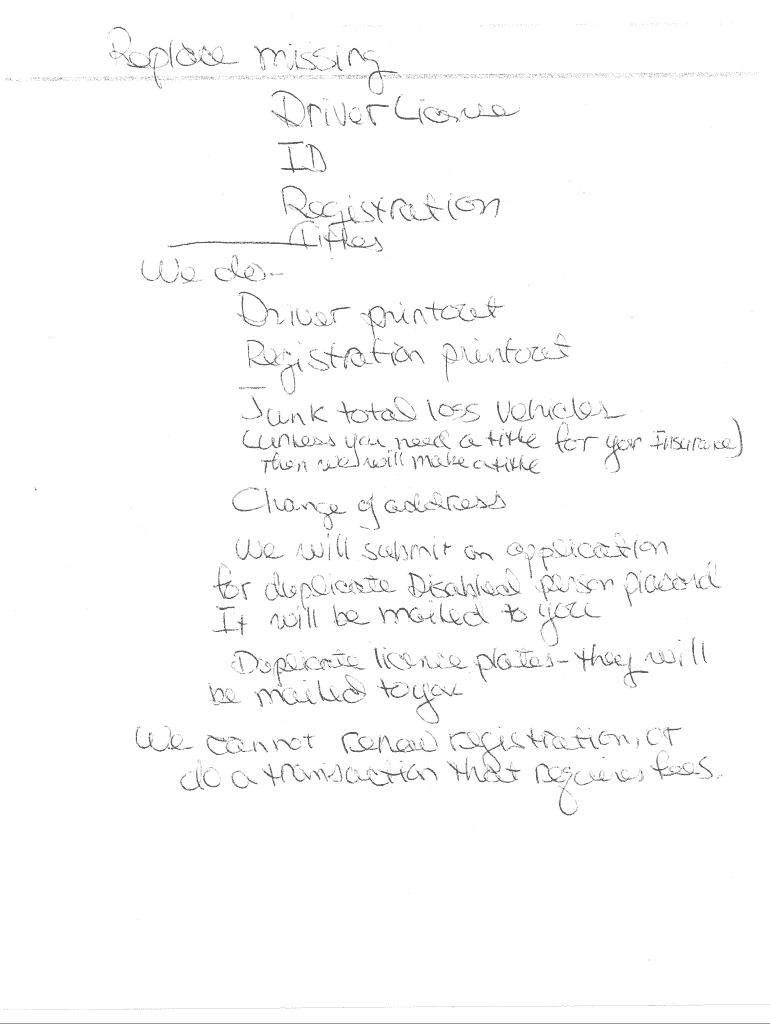 Replace missing
Driver License
ID
Registration
Titles
We do-
Driver printout
Registration printout
Junk total loss vehicles
(unless you need a title for your Insurance)
Then we will make a title
Change of address
We will submit an application
for duplicate Disabled person placard
It will be mailed to you
Duplicate license plates - they will
be mailed to you
We cannot renew registration, or
do a transaction that requires fees.